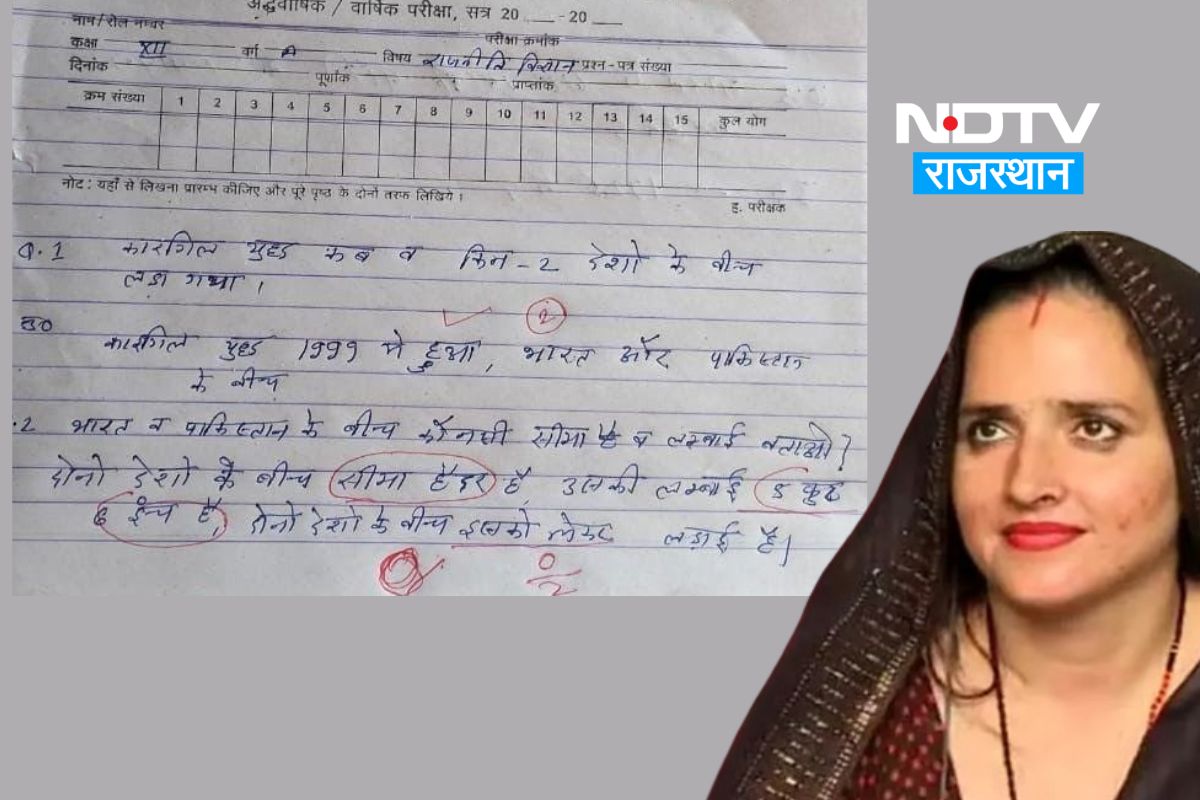 अर्द्धवार्षिक / वार्षिक परीक्षा, सत्र 20 ___ - 20 ___
नाम/रोल नम्बर
परीक्षा क्रमांक
कक्षा XII वर्ग A विषय राजनीति विज्ञान प्रश्न-पत्र संख्या
दिनांक पूर्णांक प्राप्तांक
क्रम संख्या 1 2 3 4 5 6 7 8 9 10 11 12 13 14 15 कुल योग
नोट : यहाँ से लिखना प्रारम्भ कीजिए और पूरे पृष्ठ के दोनों तरफ लिखिये।
ह. परीक्षक
Q.1 कारगिल युद्ध कब व किन-2 देशो के बीच
लडा गया।
2
उ० कारगिल युद्ध 1999 मे हुआ, भारत और पाकिस्तान
के बीच
.2 भारत व पाकिस्तान के बीच कौनसी सीमा है व लम्बाई बताओ?
दोनो देशो के बीच सीमा हैदर है उसकी लम्बाई 5 फुट
6 ईंच है, दोनो देशो के बीच इसको लेकर लडाई है।
0
0/2
NDTV
राजस्थान